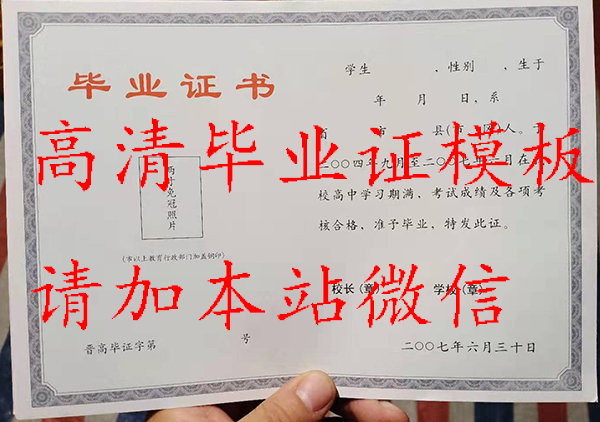 毕业证书
学生 ,性别 ,生于
年 月 日,系
省 市 县(市、区)人。于
二〇〇四年九月至二〇〇七年六月在
校高中学习期满,考试成绩及各项考
核合格,准予毕业,特发此证。
两寸免冠照片
(市以上教育行政部门加盖钢印)
校长(章) 学校(章)
晋高毕证字第 号
二〇〇七年六月三十日
高清毕业证模板
请加本站微信